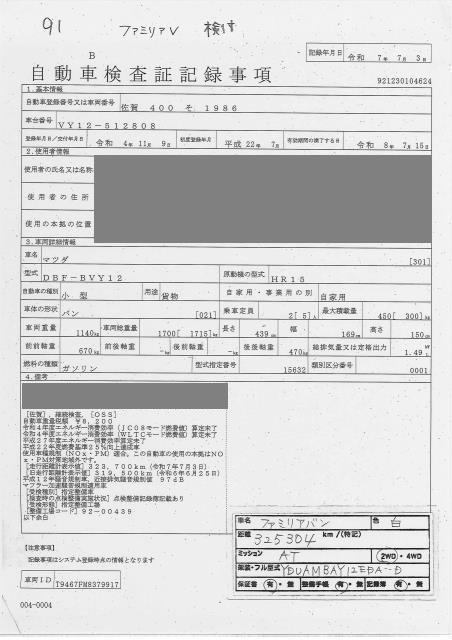 91 ファミリアV 検付
記録年月日 令和 7年 7月 3日
B
自動車検査証記録事項
921230104624
1.基本情報
自動車登録番号又は車両番号 佐賀 400 そ 1986
車台番号 VY12-512808
登録年月日/交付年月日 令和 4年11月 9日 初度登録年月 平成22年 7月 有効期間の満了する日 令和 8年 7月15日
2.使用者情報
使用者の氏名又は名称
使用者の住所
使用の本拠の位置
3.車両詳細情報
車名 マツダ [301]
型式 DBF-BVY12 原動機の型式 HR15
自動車の種別 小型 用途 貨物 自家用・事業用の別 自家用
車体の形状 バン [021] 乗車定員 2[ 5]人 最大積載量 450[ 300]kg
車両重量 1140kg 車両総重量 1700[ 1715]kg 長さ 439cm 幅 169cm 高さ 150cm
前前軸重 670kg 前後軸重 -kg 後前軸重 -kg 後後軸重 470kg 総排気量又は定格出力 1.49
燃料の種類 ガソリン 型式指定番号 15632 類別区分番号 0001
4.備考
[佐賀],継続検査,[OSS]
自動車重量税額 ¥8,200
令和4年度エネルギー消費効率(JC08モード燃費値)算定未了
令和4年度エネルギー消費効率(WLTCモード燃費値)算定未了
平成27年度エネルギー消費効率算定未了
平成22年度燃費基準25%向上達成車
使用車種規制(NOx・PM)適合,この自動車の使用の本拠はNO
x・PM対策地域外です。
[走行距離計表示値]323,700km(令和7年7月3日)
[旧走行距離計表示値]319,500km(令和6年6月25日)
平成12年騒音規制車,近接排気騒音規制値 97dB
マフラー加速騒音規制適用車
[受検種別]指定整備車
[検査時の点検整備実施状況]点検整備記録簿記載あり
[受検形態]指定整備工場
[整備工場コード]92-00439
以下余白
車名 ファミリアバン 色 白
距離 325304 km/(特記)
ミッション AT 2WD・4WD
架装・フル型式
保証書 有・無 整備手帳 有・無 記録簿 有・無
【注意事項】
記録事項はシステム登録時点の情報となります
車両ID T9467FM8379917
004-0004